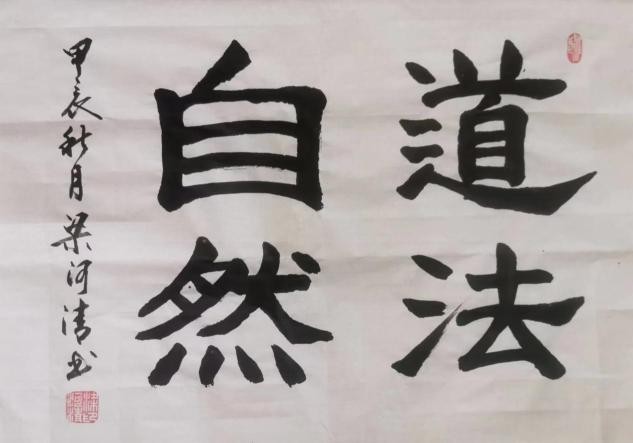 道法
自然
甲辰秋月梁河清书